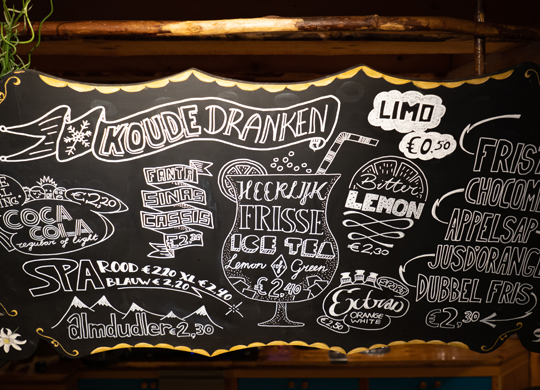 KOUDE DRANKEN
LIMO
€0.50
€2,20
COCA
COLA
regular of light
FANTA
SINAS
CASSIS
€2,30
HEERLIJK
FRISSE
ICE TEA
Lemon of Green
€2,40
Bitter
LEMON
€2,30
FRIST
CHOCOM
APPELSAP
JUS D'ORANGE
DUBBEL FRIS
€2,30
SPA ROOD €2,20 XL €2,40
BLAUW €2,20
almdudler €2,30
ORANGE
WHITE
€2,50